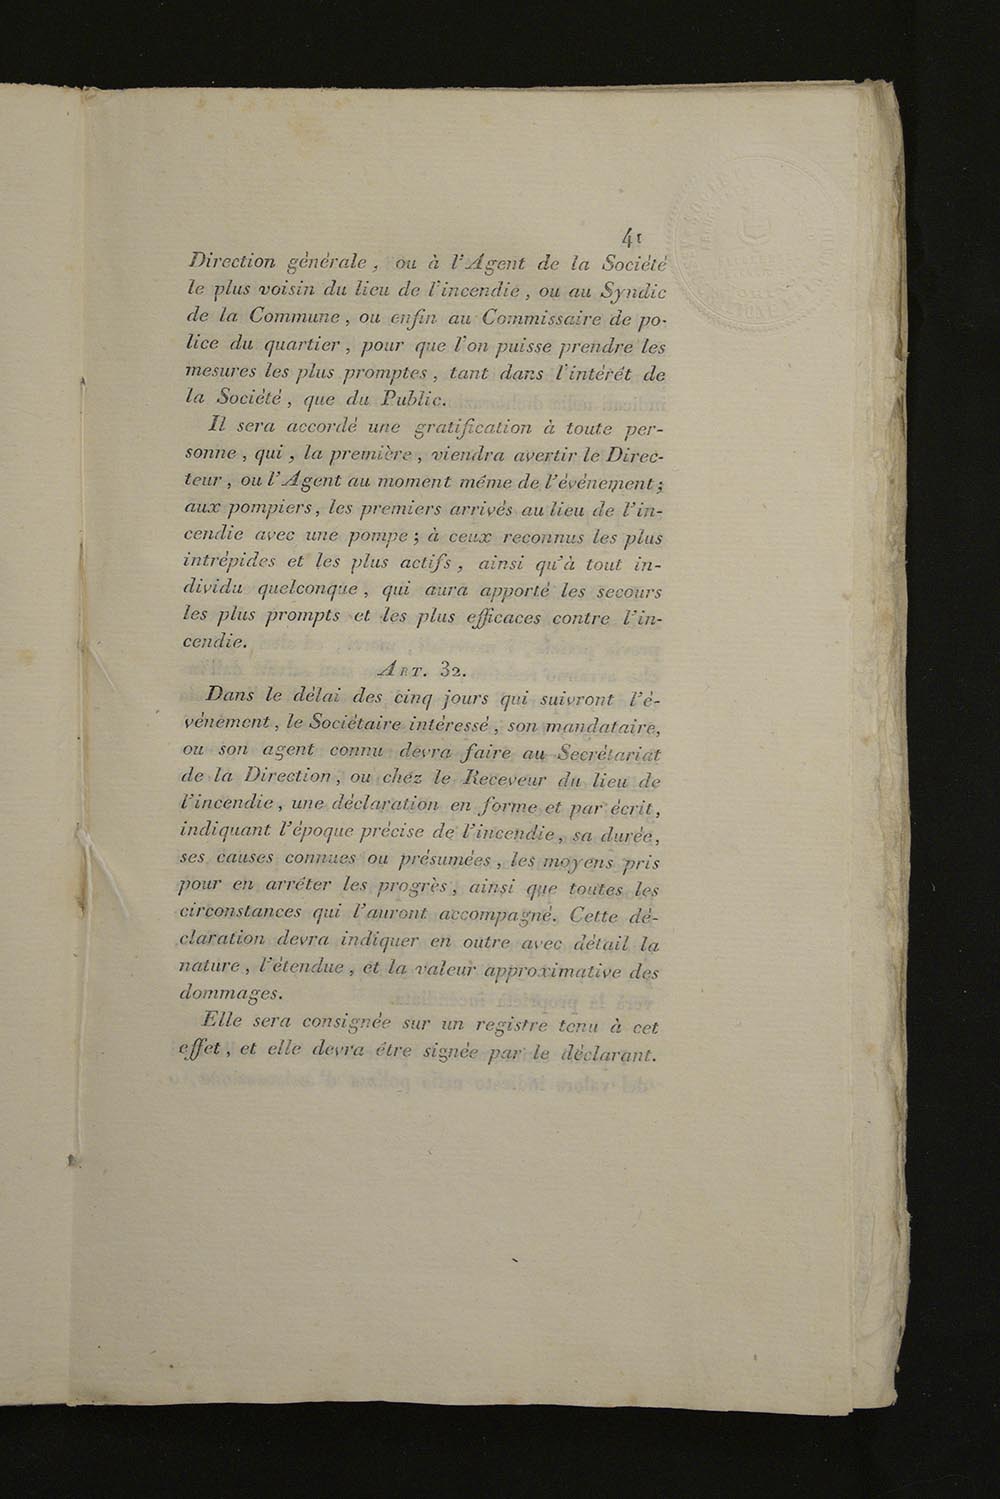 41
Direction générale, ou à l'Agent de la Société
le plus voisin du lieu de l'incendie, ou au Syndic
de la Commune, ou enfin au Commissaire de po-
lice du quartier, pour que l'on puisse prendre les
mesures les plus promptes, tant dans l'intérét de
la Société, que du Public.
Il sera accordé une gratification à toute per-
sonne, qui, la première, viendra avertir le Direc-
teur, ou l'Agent au moment méme de l'événement;
aux pompiers, les premiers arrivés au lieu de l'in-
cendie avec une pompe; à ceux reconnus les plus
intrépides et les plus actifs, ainsi qu'à tout in-
dividu quelconque, qui aura apporté les secours
les plus prompts et les plus efficaces contre l'in-
cendie.
ART. 32.
Dans le délai des cinq jours qui suivront l'é-
vénement, le Sociétaire intéressé, son mandataire,
ou son agent connu devra faire au Secrétariat
de la Direction, ou chez le Receveur du lieu de
l'incendie, une déclaration en forme et par écrit,
indiquant l'époque précise de l'incendie, sa durée,
ses causes connues ou présumées, les moyens pris
pour en arréter les progrès, ainsi que toutes les
circonstances qui l'auront accompagné. Cette dé-
claration devra indiquer en outre avec détail la
nature, l'étendue, et la valeur approximative des
dommages.
Elle sera consignée sur un registre tenu à cet
effet, et elle devra étre signée par le déclarant.